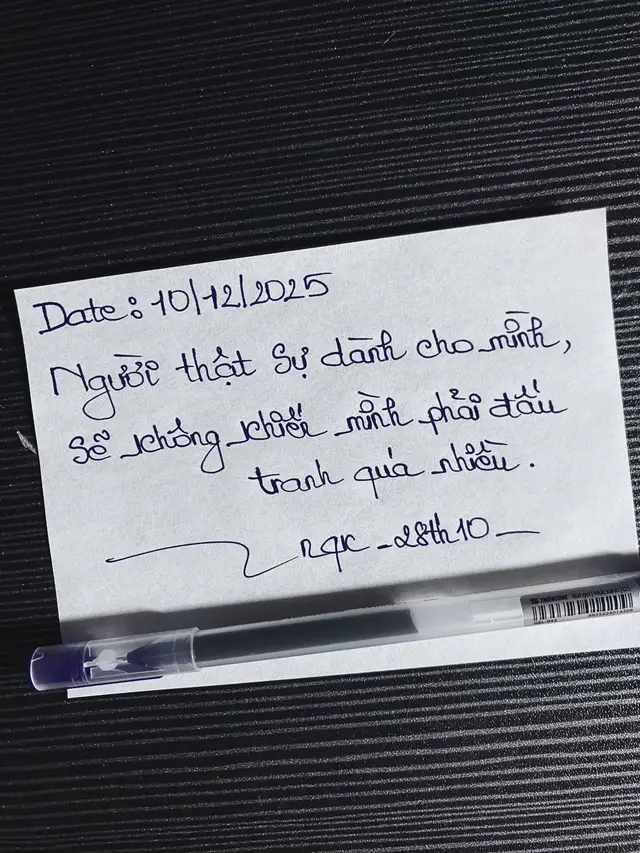 Date: 10/12/2025
Người thật sự dành cho mình,
sẽ không khiến mình phải đấu
tranh quá nhiều.
nqk - 28th10 -